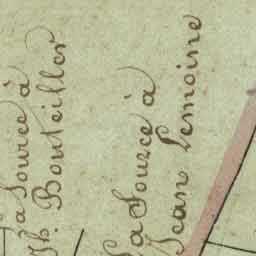 la Source à
Th. Bouteiller
la Source à
Jean Lemoine